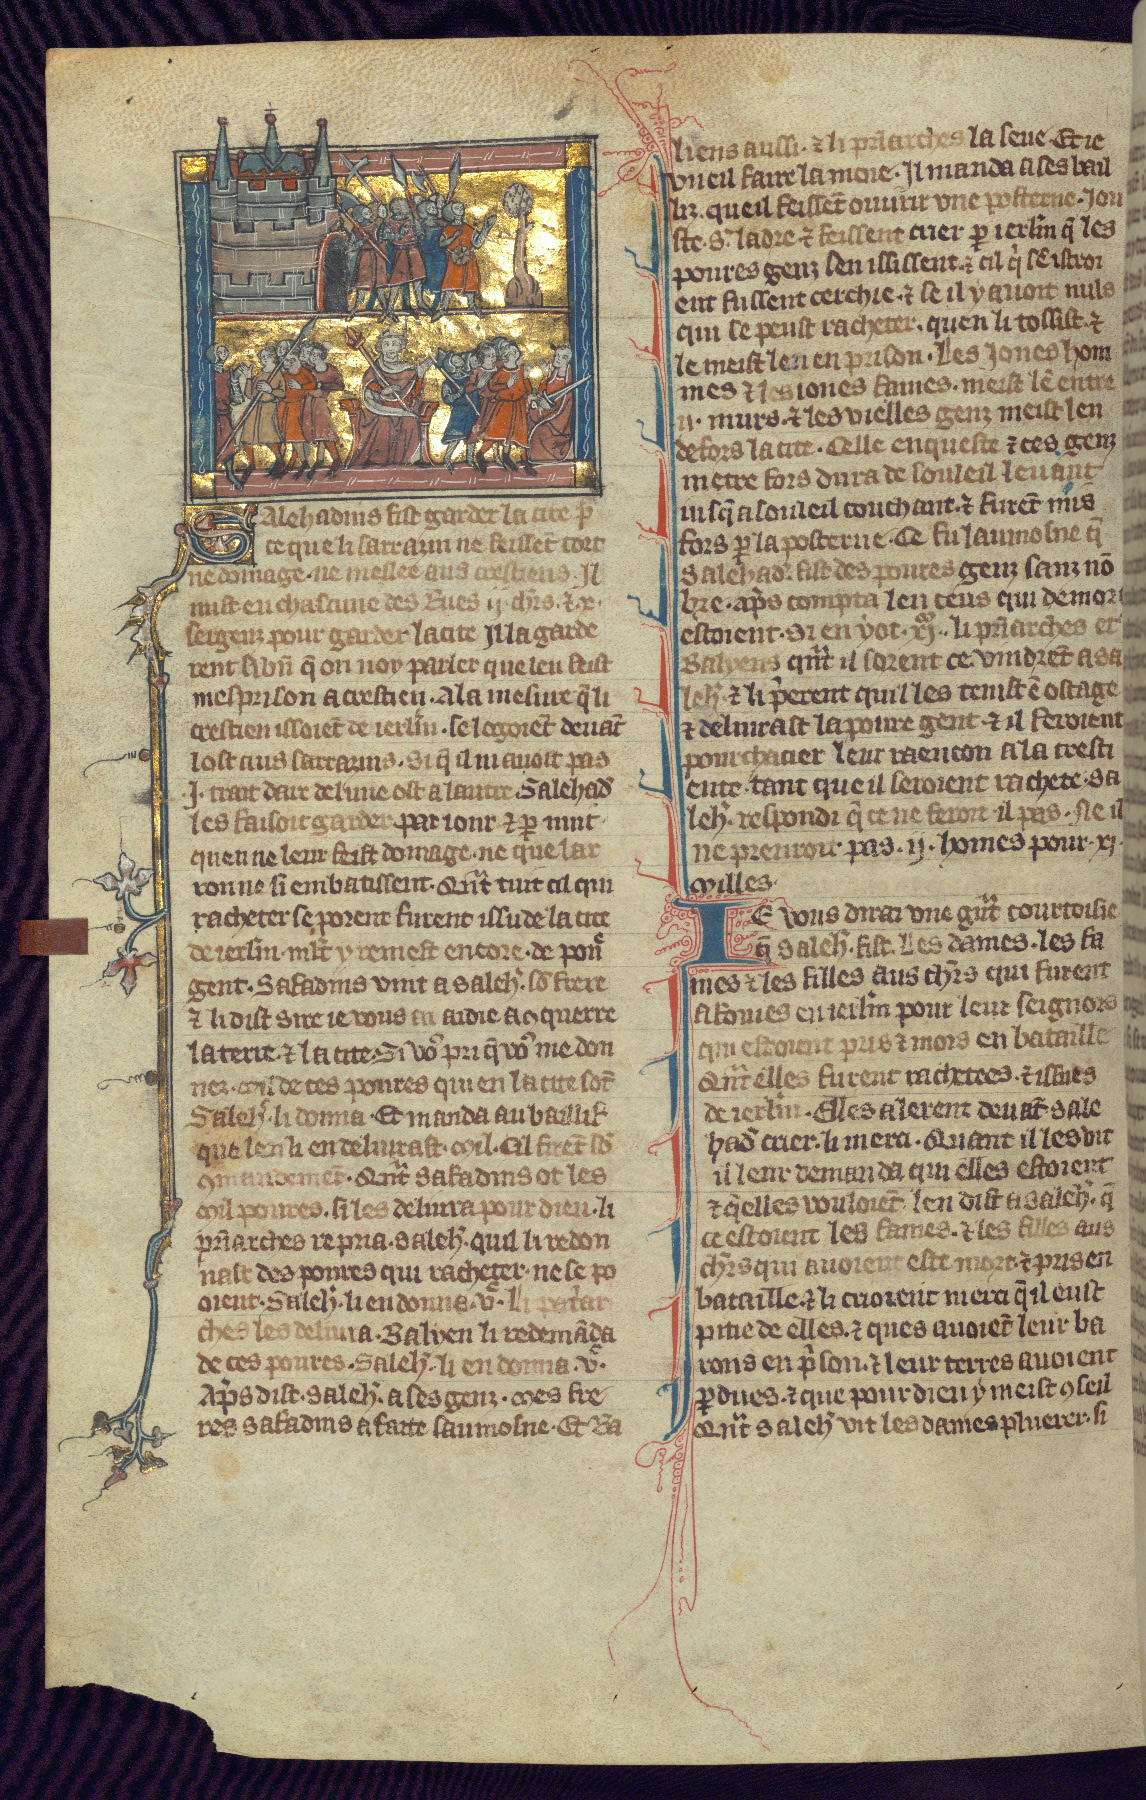 Alehadins fist garder la cite p̄
ce que li sarrazin ne feissēt tort
ne domage. ne meslee aus crestiens. Il
mist en chascune des Rues .ij. chr̄s. ⁊ .x.
sergenz pour garder la cite Il la garde
rent si bn̄ q̄ on noy parler que len feist
mesprison a crestien. A la mesure q̄ li
crestien issoiēt de ierlm̄. se logoiēt deuāt
lost aus sarrazins. Si q̄ il ni auoit pas
.J. trait darc de lune ost a lautre. Salehad̄
les faisoit garder par iour ⁊ p̄ nuit.
quen ne leur feist domage. ne que lar
ron ne si embatissent. Qn̄t tuit cil qui
racheter se porent furent issu de la cite
de ierlm̄. ml̄t y remest encore. de poure
gent. Safadins vint a saleh̄. so frere
⁊ li dist Sire ie vous ai aidie a ꝯquerre
la terre ⁊ la cite. Si vo᷒ pri q̄ vo᷒ me don
nez .mil de ces poures qui en la cite sōt
Saleh̄. li donna. Et manda au baillif
que len li en deliurast .mil. Cil firēt so
ꝯmandemēt. Qn̄t safadins ot les
mil poures. si les deliura pour dieu. li
pr̄iarches re pria. saleh̄. quil li redon
nast des poures qui racheter. ne se po
oient. Saleh̄. li en donna .vͨ. Li patriar
ches les deliura. Balyen li redemāda
de ces poures. Saleh̄. li en donna .vͨ.
Ap̄s dist. saleh̄. a ses genz. Mes fre
res safadins a faite saumosne. Et Ba
liens aussi. ⁊ li pr̄iarches la seue. Et ie
vueil faire la moie. Il manda a ses bail
liz. que il feissēt ouurir vne posterne. Jou
ste .S. ladre ⁊ feissent crier p̄ ierlm̄ q̄ les
poures genz sen ississent. ⁊ cil q̄ sē istroi
ent fussent cerchie. ⁊ se il y auoit nuls
qui se peust racheter. quen li tossist. ⁊
le meist len en prison. Les Jones hom
mes ⁊ les iones fames. meist lē entre
.ij. murs. ⁊ les vielles genz meist len
defors la cite. Celle enqueste ⁊ ces genz
metre fors dura de souleil leuant
iusq̄ a souleil couchant. ⁊ furēt mis
fors p̄ la posterne. Ce fu laumosne q̄
Salehad̄. fist des poures genz sanz nō
bre. ap̄s compta len ceus qui demori
estoient. Si en yot .xj.ͫ. li pr̄iarches et
Balyens qn̄t il sorent ce. vindrēt a sa
leh̄. ⁊ li p̄erent quil les tenist ē ostage
⁊ deliurast la poure gent. ⁊ il feroient
pourchacier leur raencon a la cresti
ente. tant que il seroient rachete. Sa
leh̄. respondi q̄ ce ne feroit il pas. Ne il
ne prenroit pas .ij. homes pour .xj.
milles.
IE vous dirai vne gn̄t courtoisie
q̄ saleh̄. fist. Les dames. les fa
mes ⁊ les filles aus chr̄s qui furent
afouies en ierlm̄ pour leur seignors
qui estoient pris ⁊ mors en bataille
Qn̄t elles furent rachetees. ⁊ issues
de ierlm̄. Elles alerent deuāt sale
had̄ crier. li merci. Quant il les vit
il leur demanda qui elles estoient
⁊ q̄elles vouloiēt. len dist a saleh̄. q̄
ce estoient les fames. ⁊ les filles aus
chr̄s qui auoient este mort. ⁊ pris en
bataille. ⁊ li crioient merci q̄ il eust
pitie de elles. ⁊ ques auoiēt leur ba
rons en p̄son. ⁊ leur terres auoient
p̄dues. ⁊ que pour dieu y meist ꝯseil
Qn̄t saleh̄ vit les dames pluerer. si